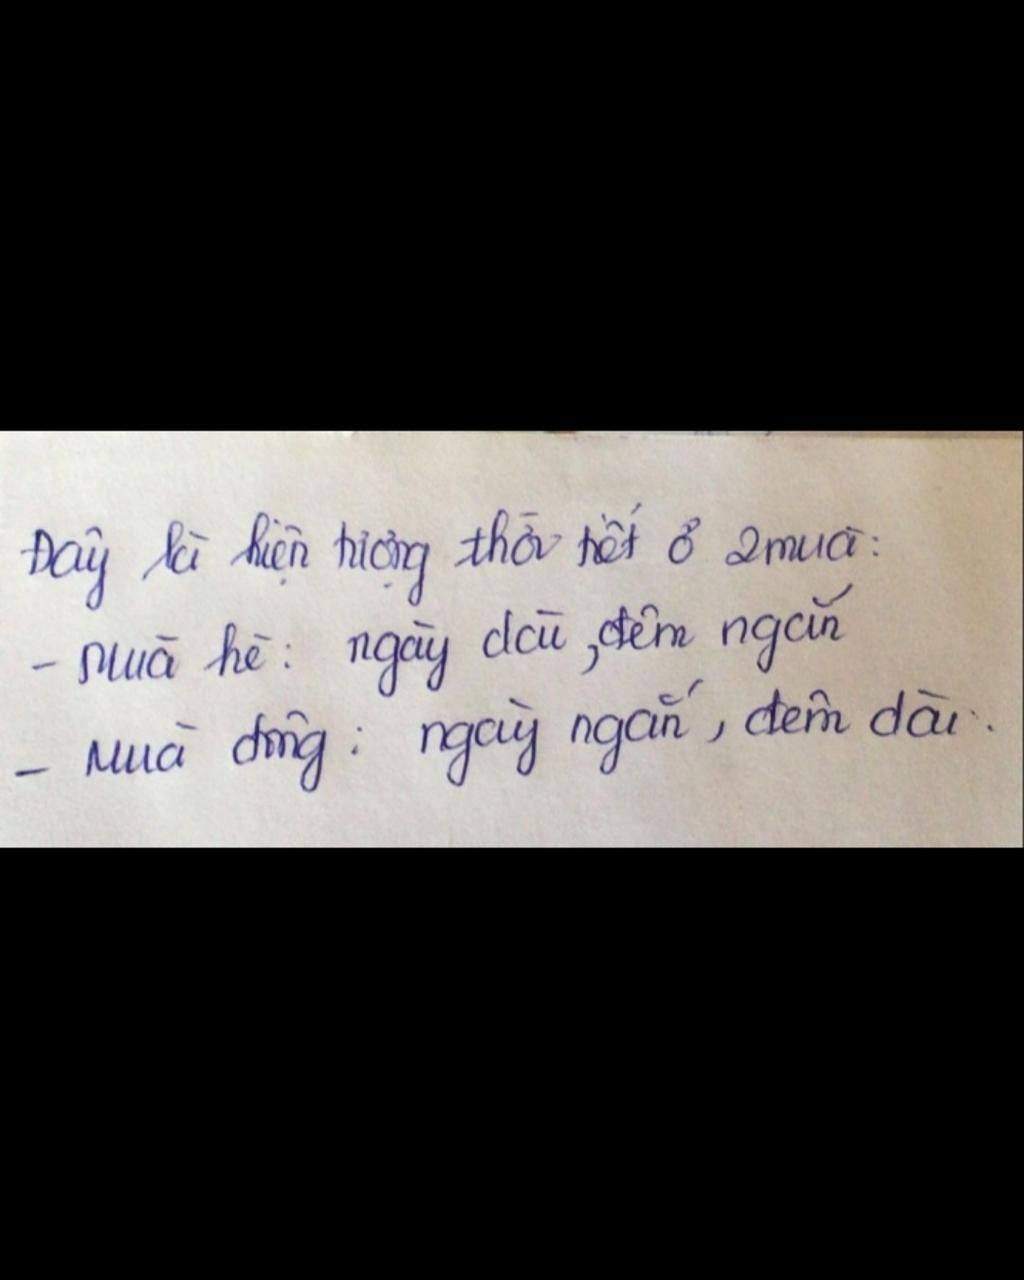 Đây là hiện tượng thời tiết ở 2 mùa:
- Mùa hè: ngày dài, đêm ngắn
- Mùa đông: ngày ngắn, đêm dài.